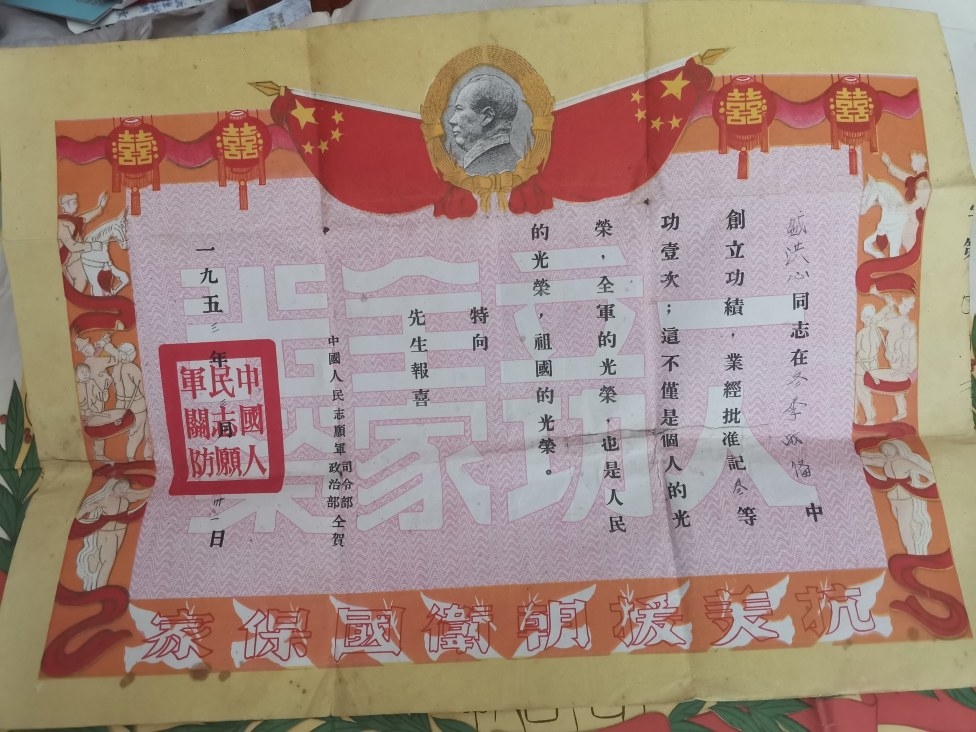 囍 囍 囍 囍
一人立功
全家光榮
洪心同志在冬季備中
創立功績，業經批准記叁等
功壹次；這不僅是個人的光
榮，全軍的光榮，也是人民
的光榮，祖國的光榮。
特向
先生報喜
中國人民志願軍司令部政治部仝賀
一九五三年月卅一日
中國人
民志願
軍關防
抗美援朝衛國保家